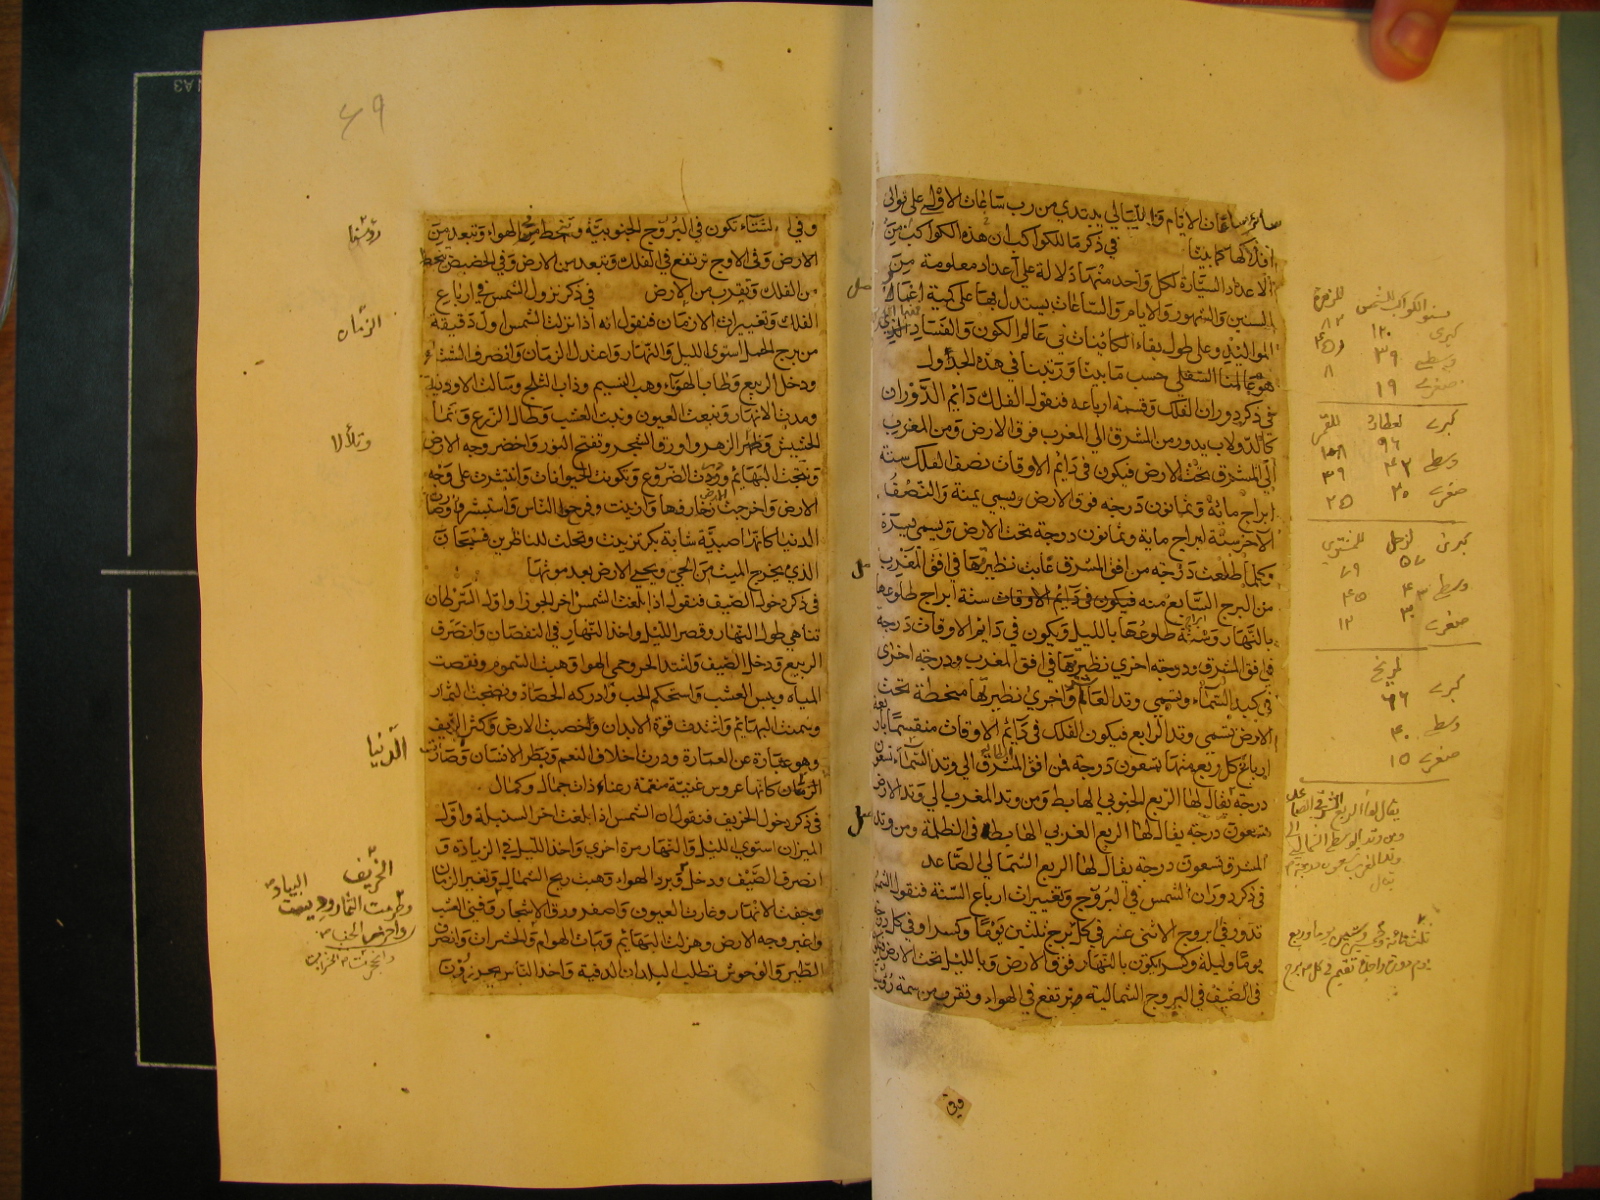 سائر ساعات الايام والليالي يبتدي من رب ساعات الاولى على توالي
افلاكها كما بينا في ذكر ما للكواكب ان هذه الكواكب من
الاعداد السيارة لكل واحد منها دلالة على اعداد معلومة من
السنين والشهور والايام والساعات يستدل بها على كمية اعمار
المواليد وعلى طول بقاء الكائنات في عالم الكون والفساد الذي
هو عالمنا السفلي حسب ما بينا ورتبنا في هذه الجداول
في ذكر دوران الفلك وقسمة ارباعه فنقول الفلك دائم الدوران
كالدولاب يدور من المشرق الى المغرب فوق الارض ومن المغرب
الى المشرق تحت الارض فيكون في دائم الاوقات نصف الفلك ستة
ابراج مائة وثمانون درجة فوق الارض ويسمى يمنة والنصف
الاخر ستة ابراج ماية وثمانون درجة تحت الارض ويسمى يسرة
وكلما طلعت درجة من افق المشرق غابت نظيرتها في افق المغرب
من البرج السابع منه فيكون في دائم الاوقات ستة ابراج طلوعها
بالنهار وستة طلوعها بالليل ويكون في دائم الاوقات درجة
في افق المشرق ودرجة اخرى نظيرتها في افق المغرب ودرجة اخرى
في كبد السماء وتسمى وتد العاشر واخرى نظيرتها منحطة تحت
الارض تسمى وتد الرابع فيكون الفلك في دائم الاوقات منقسما
ارباع كل ربع منها تسعون درجة فمن افق المشرق الى وتد السماء تسعون
درجة يقال لها الربع الجنوبي الهابط ومن وتد المغرب الى وتد الارض
تسعون درجة يقال لها الربع الغربي الهابط في الظلمة ومن وتد
المشرق تسعون درجة يقال لها الربع الشمالي الصاعد
في ذكر دوران الشمس في البروج وتغييرات ارباع السنة فنقول الشمس
تدور في البروج الاثني عشر في كل برج ثلثين يوما وكسرا وفي كل
يوما وليلة وكسر يكون بالنهار فوق الارض وبالليل تحت الارض
في الصيف في البروج الشمالية مرتفع في الهواء وتقرب من سمت رؤ
وفي
سنو الكواكب للشمس للزهرة
كبرى ١٢٠ ٨٢
وسطى ٣٩ ٤٥
صغرى ١٩ ٨
لعطارد للقمر
كبرى
وسطى
صغرى ٢٠ ٢٥
كبرى لزحل للمشتري
٥٧ ٧٩
وسطى ٤٣ ٤٥
صغرى ٣٠ ١٢
لمريخ
كبرى ٦٦
وسطى ٤٠
صغرى ١٥
٤٩
وفي الشتاء تكون في البروج الجنوبية وتنحط من الهواء وتبعد من
الارض وفي الاوج ترتفع في الفلك وتبعد من الارض وفي الحضيض تنحط
من الفلك وتقرب من الارض في ذكر نزول الشمس في ارباع
الفلك وتغييرات الازمان فنقول انه اذا نزلت الشمس اول دقيقة
من برج الحمل استوى الليل والنهار واعتدل الزمان وانصرف الشتاء
ودخل الربيع وطاب الهواء وهب النسيم وذاب الثلج وسالت الاودية
ومدت الانهار ونبعت العيون ونبت العشب وطال الزرع ونما
الحشيش وظهر الزهر واورق الشجر وتفتح النور واخضر وجه الارض
ونتجت البهائم ودرت الضروع وتكونت الحيوانات وانتشرت على وجه
الارض واخرجت الارض زخارفها وازينت وفرحوا الناس واستبشروا وصارت
الدنيا كانها صبية شابة بكر تزينت وتجلت للناظرين فسبحان
الذي يخرج الميت من الحي ويحيي الارض بعد موتها
في ذكر دخول الصيف فنقول اذا بلغت الشمس اخر الجوزا واول السرطان
تناهى طول النهار وقصر الليل واخذ النهار في النقصان وانصرف
الربيع ودخل الصيف واشتد الحر وحمي الهوا وهبت السموم ونقصت
المياه ويبس العشب واستحكم الحب وادرك الحصاد ونضجت الثمار
وسمنت البهائم واشتدت قوة الابدان واخصبت الارض وكثر الريف
وهو عبارة عن العمارة ودرت اخلاف النعم وبطر الانسان وصارت
الزمان كانها عروس غنية منعمة رعناء ذات جمال وكمال
في ذكر دخول الخريف فنقول ان الشمس اذا بلغت اخر السنبلة واول
الميزان استوى الليل والنهار مرة اخرى واخذ الليل في الزيادة و
انصرف الصيف ودخل وبرد الهواء وهبت ريح الشمال وتغير الزمان
وجفت الانهار وغارت العيون واصفر ورق الاشجار وفني العشب
واغبر وجه الارض وهزلت البهائم وماتت الهوام والحشرات وانصرف
الطير والوحوش تطلب البلدان الدفية واخذ الناس يحرزون
رؤسنا
الزمان
وتلألأ
الدنيا
الخريف